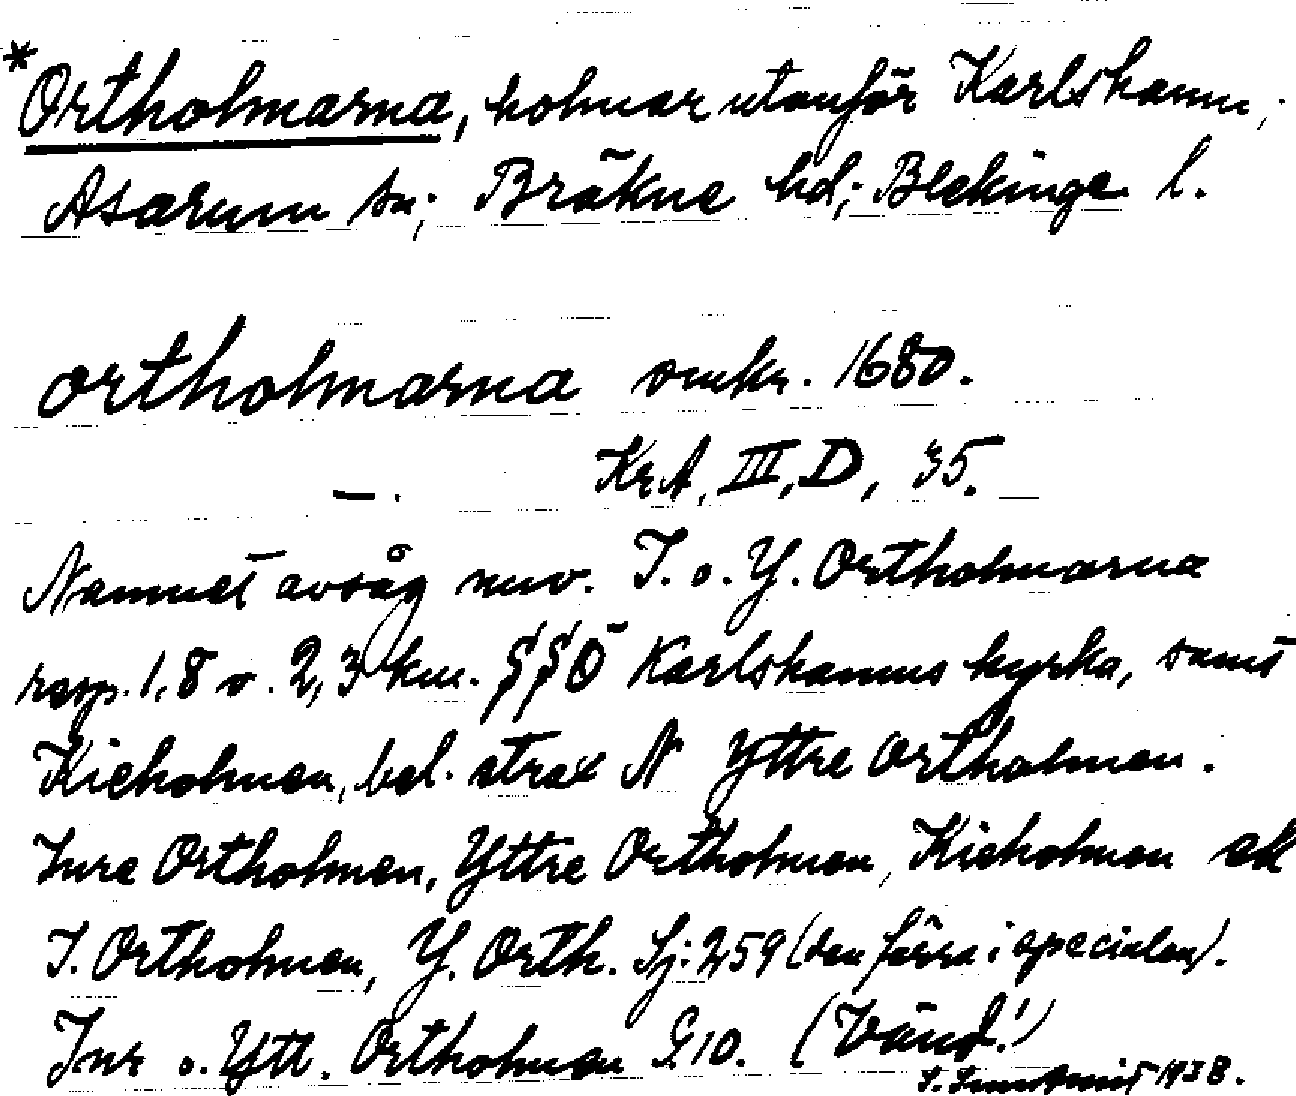 *Ortholmarna, holmar utanför Karlshamn,
Asarum sn; Bräkne hd; Blekinge l.
ortholmarna omkr. 1680.
KrA, III, D, 35.
Namnet avsåg nuv. I. o. Y. Ortholmarna
resp. 1,8 o. 2,3 km. SSÖ Karlshamns kyrka, samt
Kieholmen, bel. strax N Yttre Ortholmen.
Inre Ortholmen, Yttre Ortholmen, Kieholmen ek
I. Ortholmen, Y. Orth. Sj: 259 (den förra i specialen).
Inr o. Ytt. Ortholmen G 10. (Vänd!)
1938.